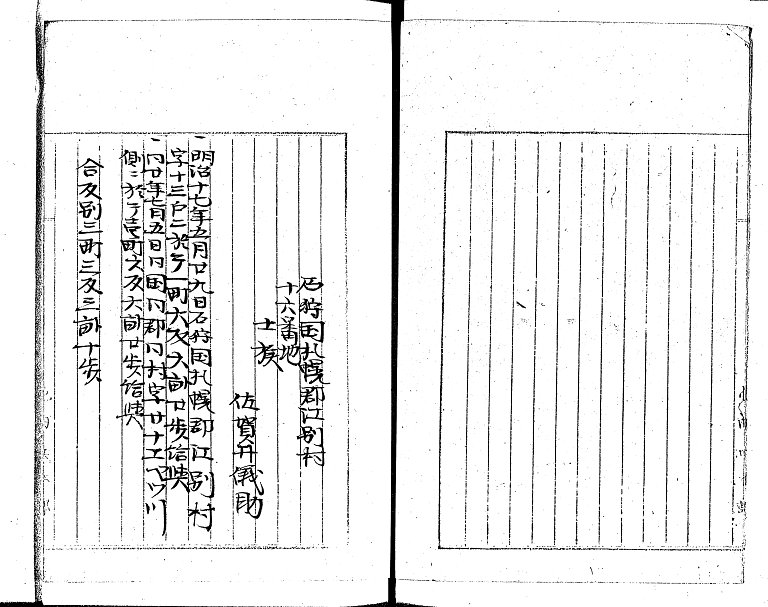 石狩国札幌郡江別村
十六番地
士族
佐賀井儀助
一明治十七年五月廿九日石狩国札幌郡江別村
字十三戸ニ於テ一町六反六畝廿歩給与
一同廿年七月五日同国同郡同村字廿十エベツ川
側ニ於テ壱町六反六畝廿歩給与
合反別三町三反三畝十歩